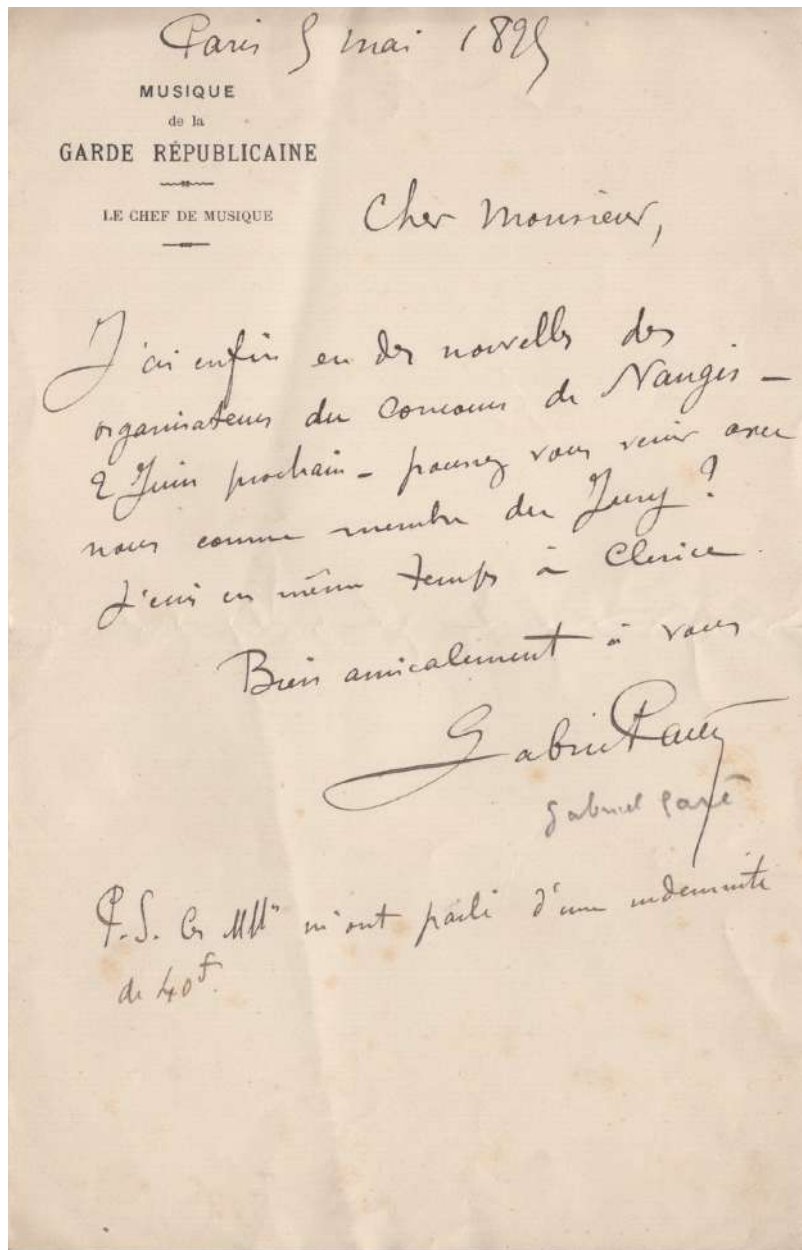 Paris 5 mai 1895
MUSIQUE
de la
GARDE RÉPUBLICAINE
LE CHEF DE MUSIQUE
Cher Monsieur,
J'ai enfin eu des nouvelles des
organisateurs du Concours de Nangis –
2 Juin prochain – pouvez vous venir avec
nous comme membre du Jury ?
J'écris en même temps à Clerice.
Bien amicalement à vous
Gabriel Parès
Gabriel Parès
P.S. Ces MMrs m'ont parlé d'une indemnité
de 40f.